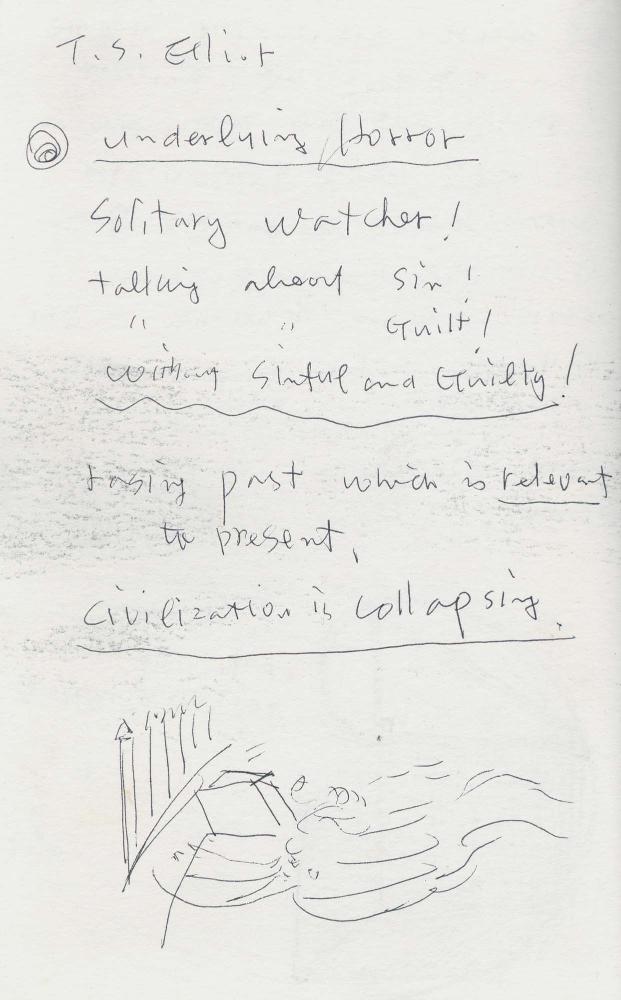 T.S. Elliot
underlying Horror
Solitary watcher!
talking about Sin!
" " Guilt!
without Sinful and Guilty!
past which is relevant
to present,
Civilization is collapsing.